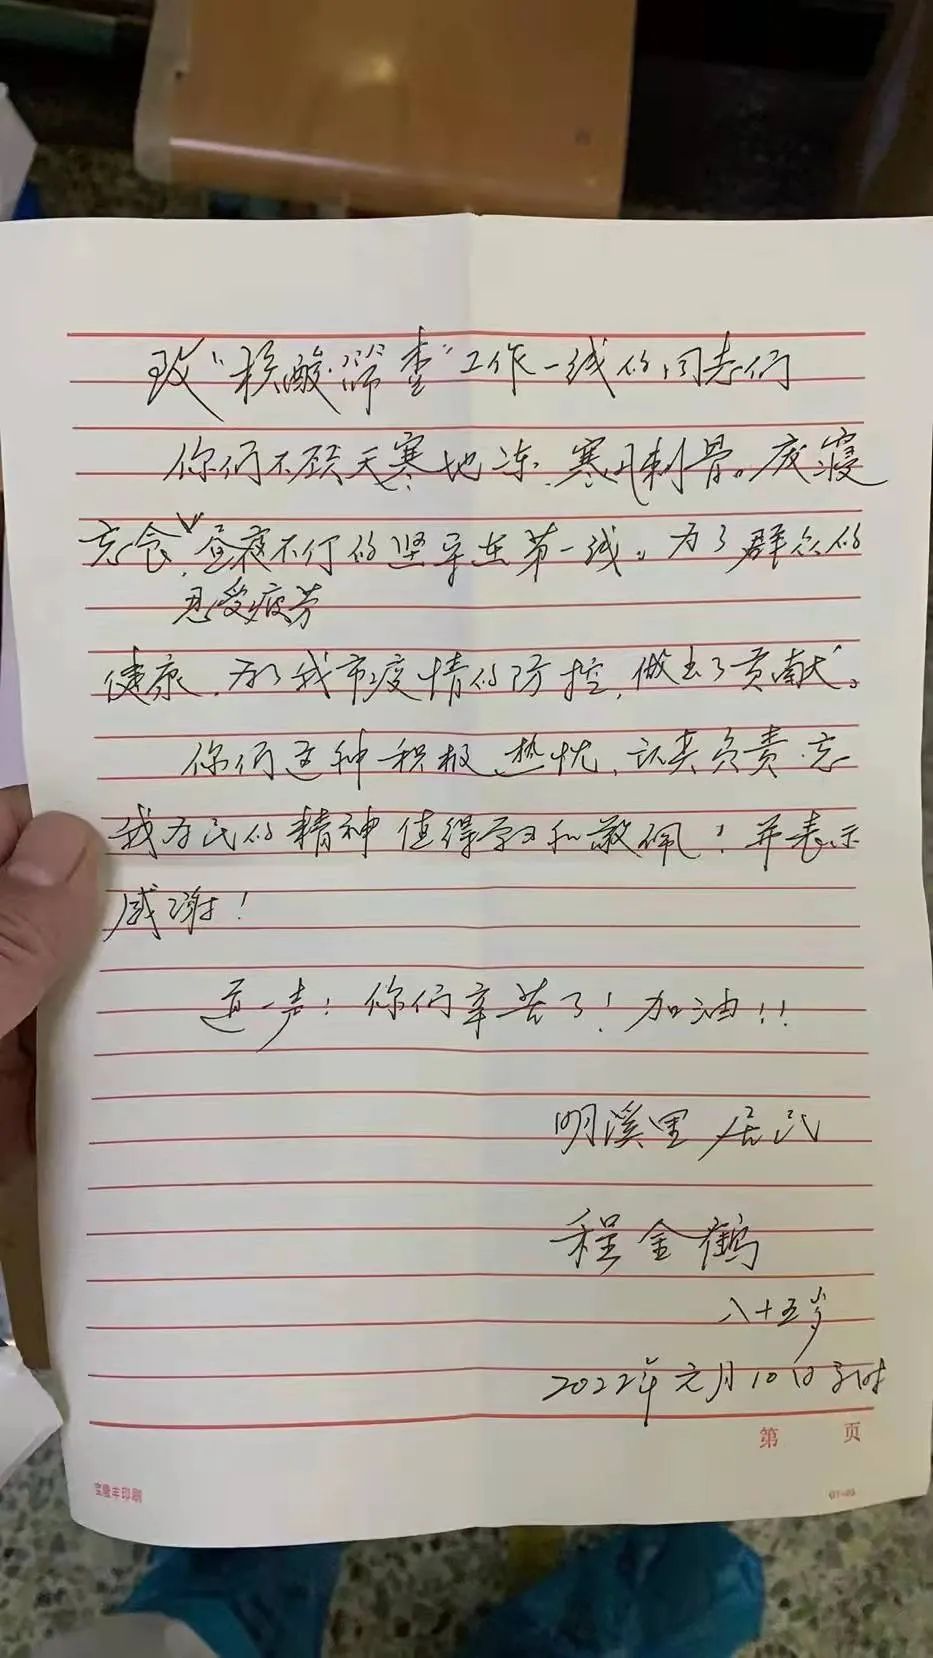 致“核酸筛查”工作一线的同志们
你们不顾天寒地冻、寒风刺骨。废寝
忘食、昼夜不停的坚守在第一线。为了群众的
忍受疲劳
健康、为了我市疫情的防控，做出了贡献。
你们这种积极、热忱、认真负责、忘
我为民的精神值得学习和敬佩！并表示
感谢！
道一声：你们辛苦了！加油！！
明溪里居民
程金鹤
八十五岁
2022年元月10日子时
第 页
宝隆丰印刷